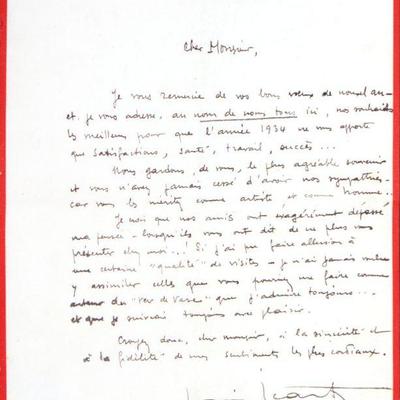 Cher Monsieur,
Je vous remercie de vos bons vœux de nouvel an -
et je vous adresse, au nom de nous tous ici, nos souhaits
les meilleurs pour que l'année 1934 ne vous apporte
que satisfactions, santé, travail, succès...
Nous gardons, de vous, le plus agréable souvenir
et vous n'avez jamais cessé d'avoir nos sympathies -
car vous les méritez comme artiste et comme homme...
Je vois que nos amis ont exagérément dépassé
ma pensée - lorsqu'ils vous ont dit de ne plus vous
présenter chez moi...! Si j'ai pu faire allusion à
une certaine "qualité" de visites - je n'ai jamais voulu
y assimiler celles que vous pourriez me faire comme
auteur du "Ver de Vase" que j'admire toujours...
et que je suivrai toujours avec plaisir.
Croyez donc, cher monsieur, à la sincérité et
à la fidélité de mes sentiments les plus cordiaux.